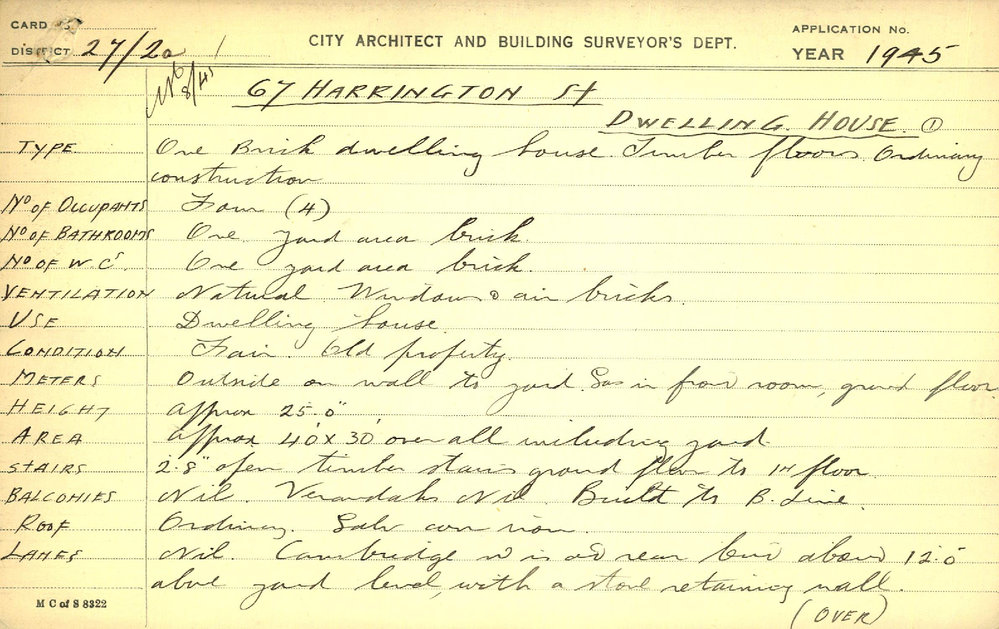 CARD
DISTRICT 27/2a
CITY ARCHITECT AND BUILDING SURVEYOR'S DEPT.
APPLICATION No.
YEAR 1945
8/45
67 HARRINGTON St
DWELLING HOUSE ①
TYPE One Brick dwelling house. Timber floors. Ordinary
construction
No OF OCCUPANTS Four (4)
No OF BATHROOMS One yard area brick.
No OF W.Cs One yard area brick.
VENTILATION Natural Windows & air bricks.
USE Dwelling house.
CONDITION Fair. Old property.
METERS Outside on wall to yard. Gas in front room, ground floor.
HEIGHT approx 25'.0"
AREA approx 40' x 30' over all including yard
STAIRS 2'.8" open timber stairs ground floor to 1st floor
BALCONIES Nil. Verandahs Nil. Built to B. Line.
ROOF Ordinary. Galv corr iron.
LANES Nil. Cambridge is rear but about 12'.0"
above yard level, with a stone retaining wall.
(OVER)
M C of S 8322